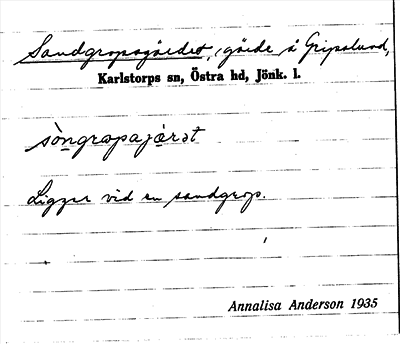 Sandgropsgärdet, gärde å Gripslund,
Karlstorps sn, Östra hd, Jönk. l.
sòngropajæ̀rət
Ligger vid en sandgrop.
Annalisa Anderson 1935